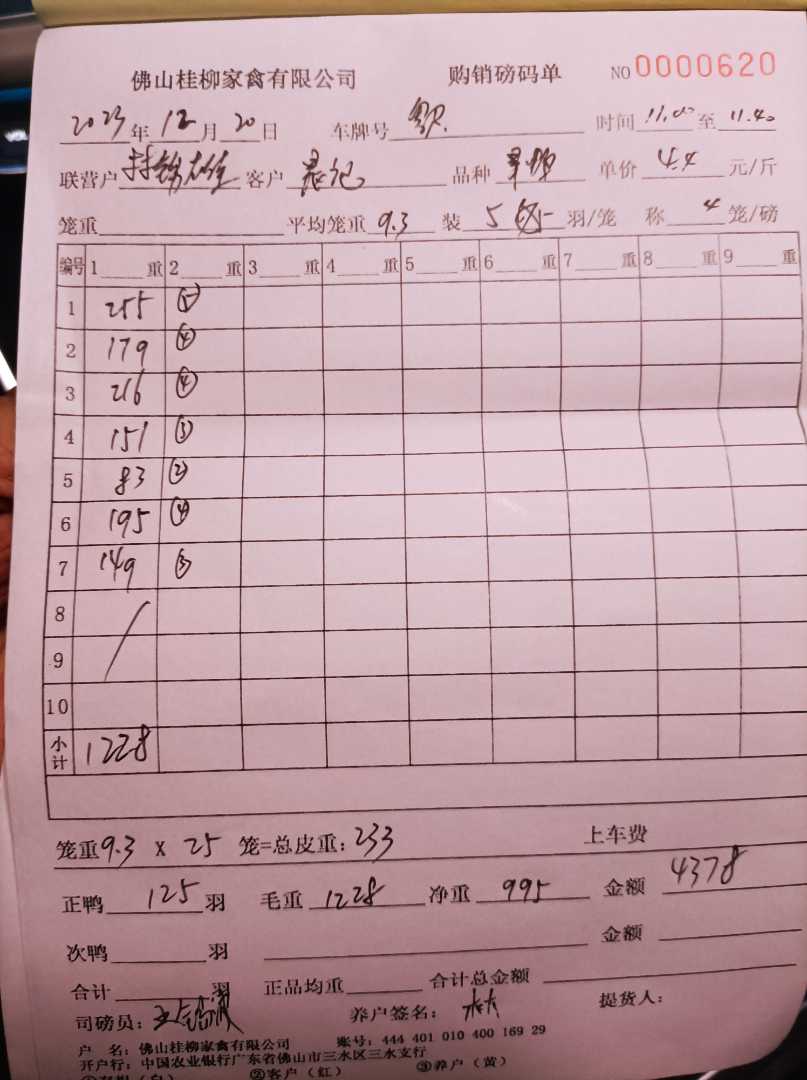 佛山桂柳家禽有限公司 购销磅码单 NO 0000620
2023年12月20日 车牌号 时间 11.00 至 11.40
联营户 客户 记 品种 单价 4.4 元/斤
笼重 平均笼重 9.3 装 5 羽/笼 称 4 笼/磅
编号 1 重 2 重 3 重 4 重 5 重 6 重 7 重 8 重 9 重
1 255 ⑤
2 179 ④
3 216 ④
4 151 ③
5 83 ②
6 195 ④
7 149 ③
8
9
10
小计 1228
笼重9.3 X 25 笼=总皮重:233 上车费
正鸭 125 羽 毛重 1228 净重 995 金额 4378
次鸭 羽 金额
合计 羽 正品均重 合计总金额
司磅员: 养户签名: 提货人:
户 名: 佛山桂柳家禽有限公司 账号: 444 401 010 400 169 29
开户行: 中国农业银行广东省佛山市三水区三水支行
②客户(红) ③养户(黄)